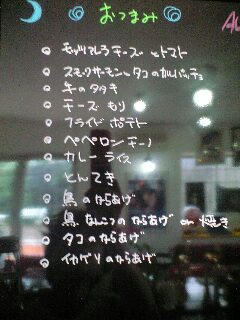 おつまみ
モッツァレラチーズ トマト
スモークサーモンとタコのカルパッチョ
牛のタタキ
チーズ もり
フライド ポテト
ペペロンチーノ
カレー ライス
とんてき
鳥のからあげ
鳥 なんこつのからあげ or 焼き
タコのからあげ
イカゲソのからあげ